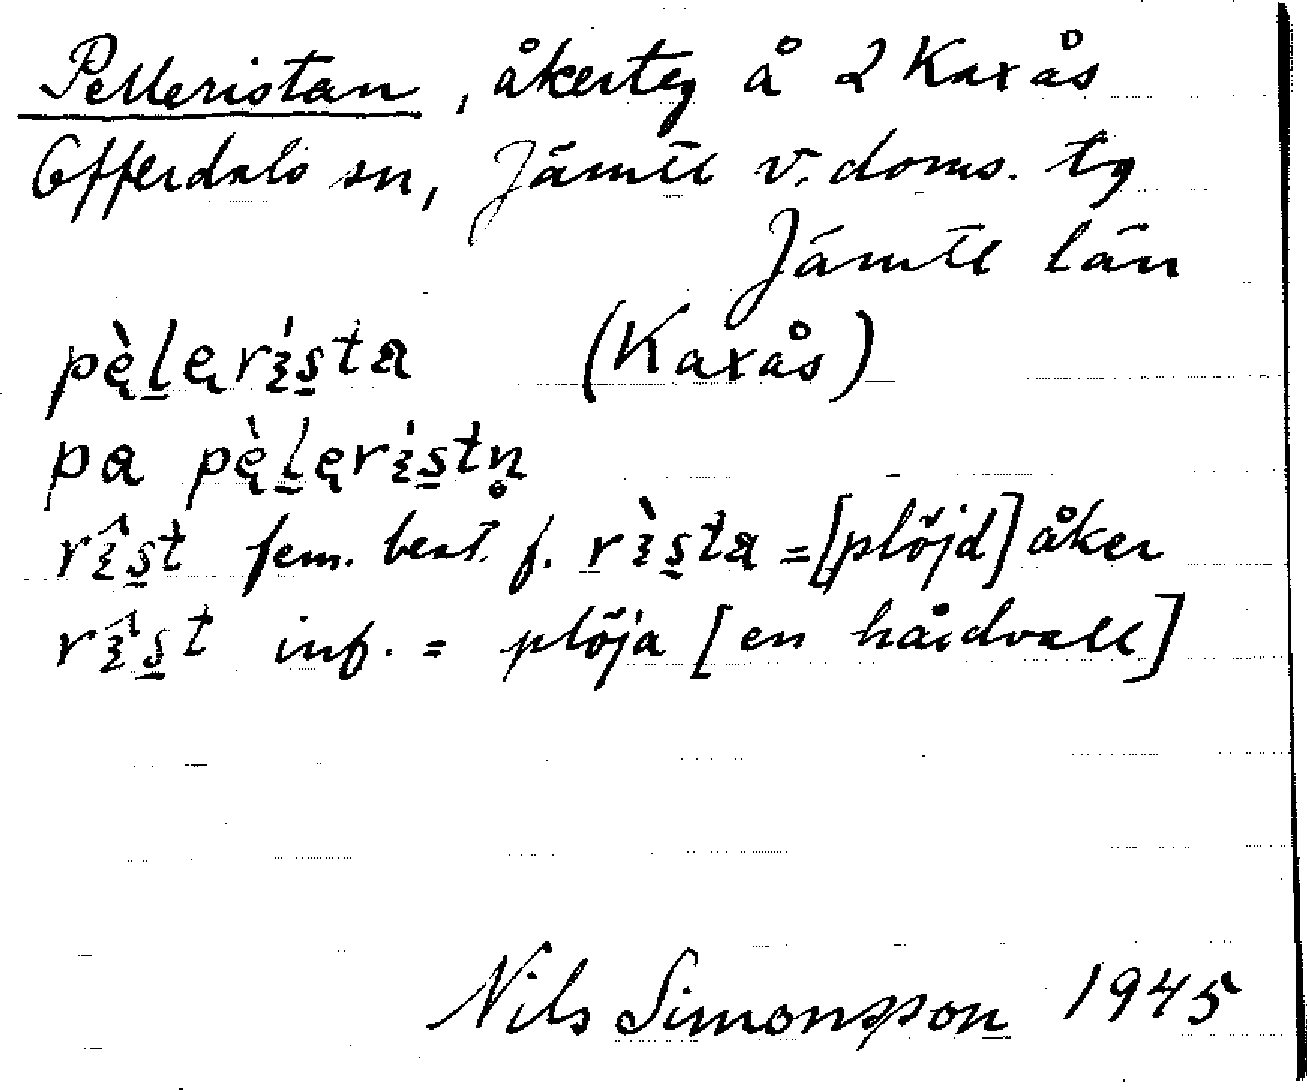 Pelleristan, åkerteg å 2 Kaxås
Offerdals sn, Jämtl v. doms. tg
Jämtl län
pę̀l̠ęrís̠ta (Kaxås)
pa pę̀l̠ęrís̠tn̥
rîs̠t fem. best. f. rìs̠ta = [plöjd] åker
rîs̠t inf. = plöja [en hårdvall]
Nils Simonsson 1945